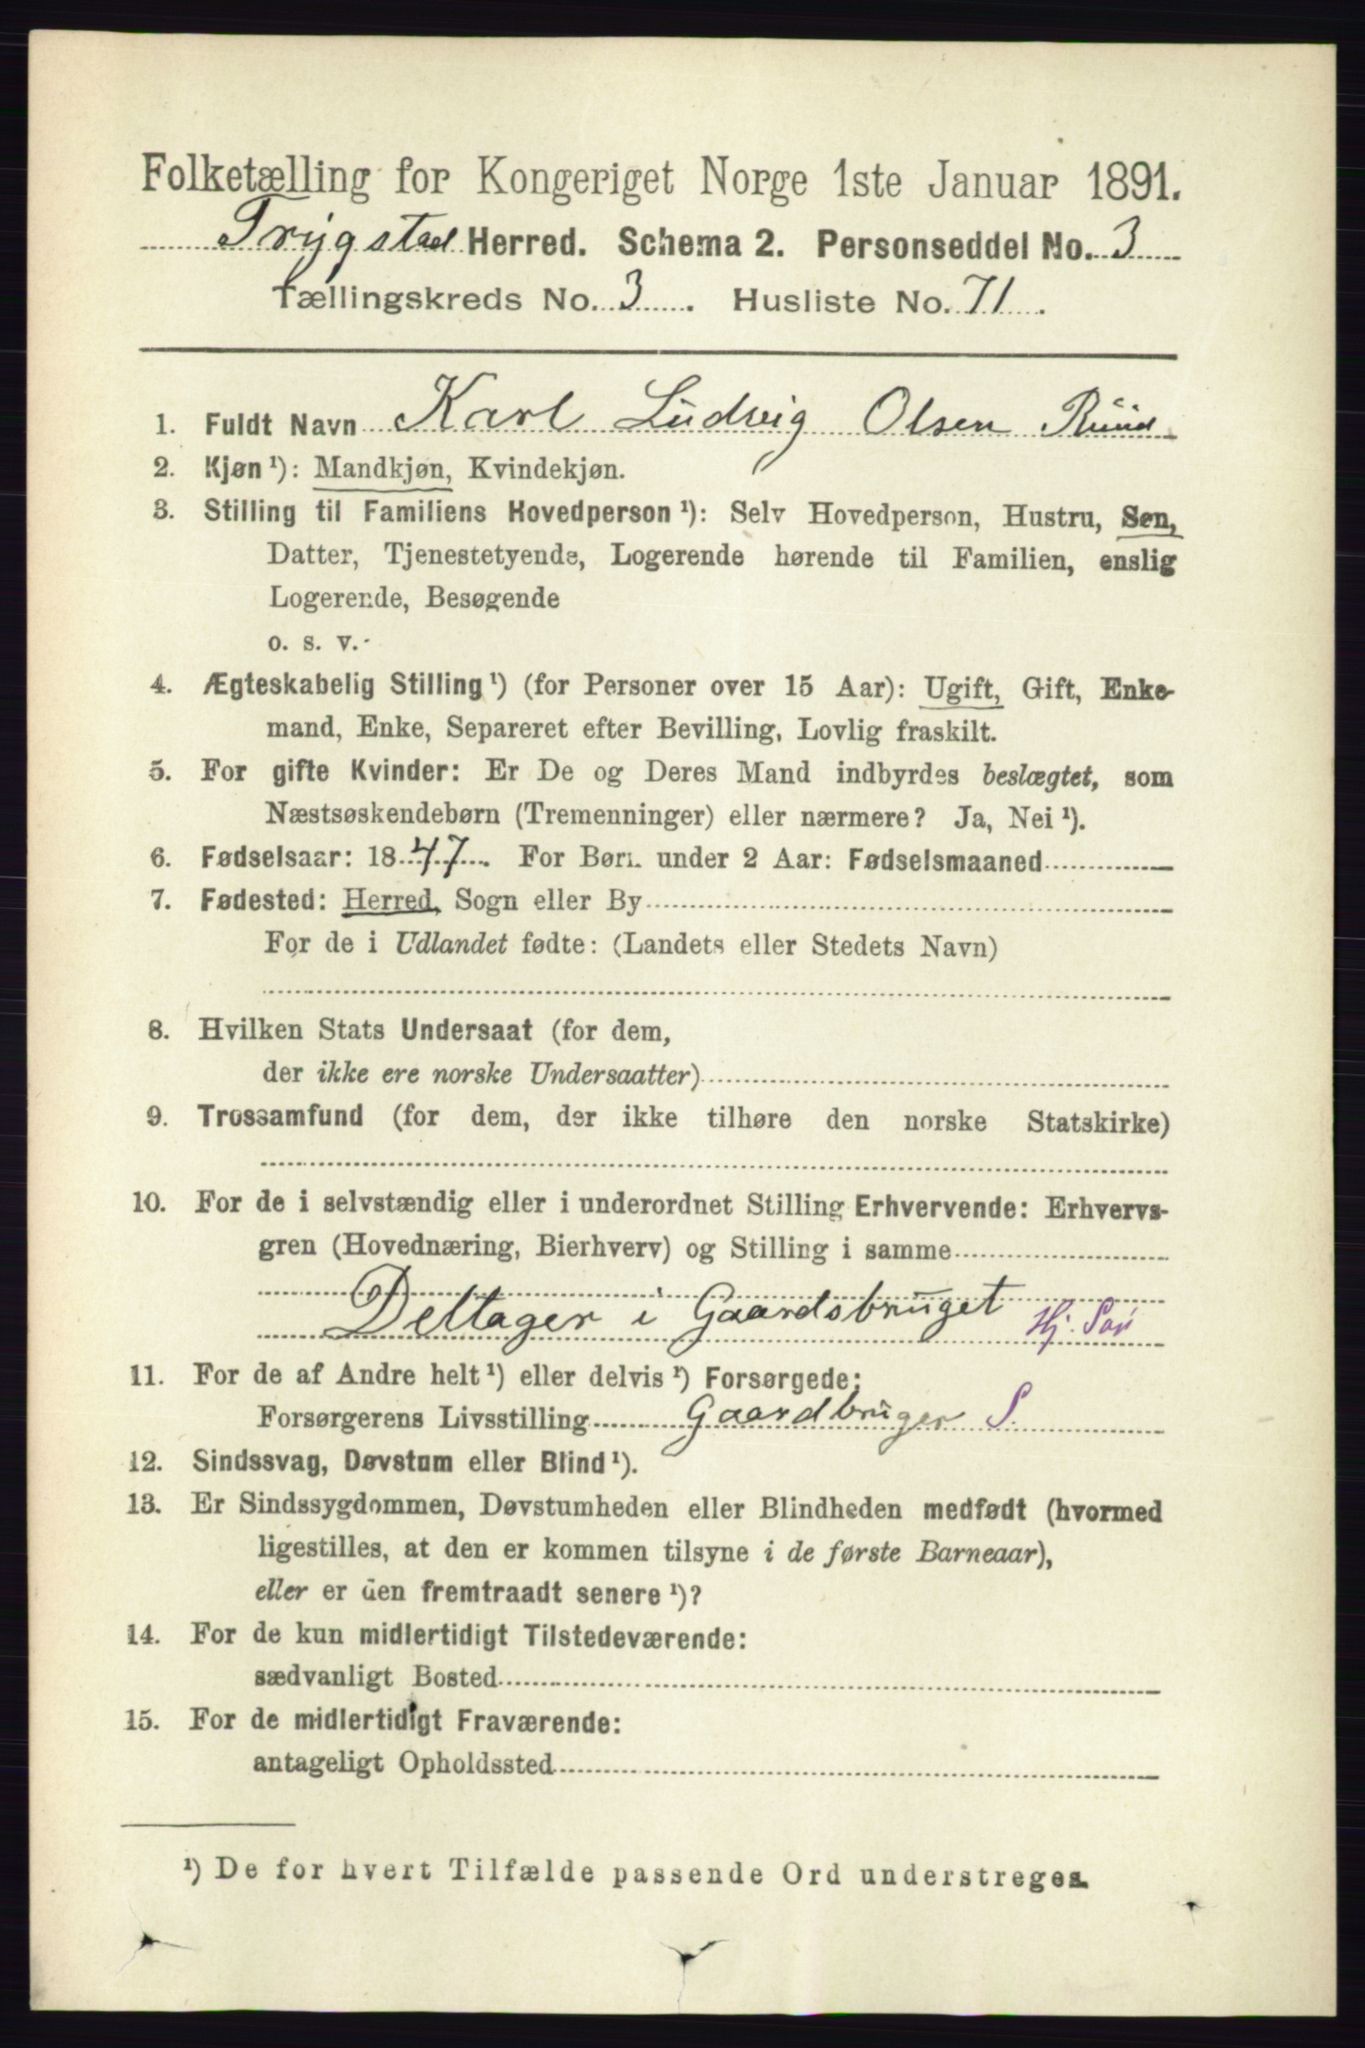 Folketælling for Kongeriget Norge 1ste Januar 1891.
Trygstad Herred. Schema 2. Personseddel No. 3
Tællingskreds No. 3. Husliste No. 71.
1. Fuldt Navn Karl Ludvig Olsen Ruud
2. Kjøn ¹): Mandkjøn, Kvindekjøn.
3. Stilling til Familiens Hovedperson ¹): Selv Hovedperson, Hustru, Søn,
Datter, Tjenestetyende, Logerende hørende til Familien, enslig
Logerende, Besøgende
o. s. v.
4. Ægteskabelig Stilling ¹) (for Personer over 15 Aar): Ugift, Gift, Enke-
mand, Enke, Separeret efter Bevilling, Lovlig fraskilt.
5. For gifte Kvinder: Er De og Deres Mand indbyrdes beslægtet, som
Næstsøskendebørn (Tremenninger) eller nærmere? Ja, Nei ¹).
6. Fødselsaar: 1847. For Børn under 2 Aar: Fødselsmaaned
7. Fødested: Herred, Sogn eller By
For de i Udlandet fødte: (Landets eller Stedets Navn)
8. Hvilken Stats Undersaat (for dem,
der ikke ere norske Undersaatter)
9. Trossamfund (for dem, der ikke tilhøre den norske Statskirke)
10. For de i selvstændig eller i underordnet Stilling Erhvervende: Erhvervs-
gren (Hovednæring, Bierhverv) og Stilling i samme
Deltager i Gaardsbruget Hj. Søn
11. For de af Andre helt ¹) eller delvis ¹) Forsørgede:
Forsørgerens Livsstilling Gaardbruger S.
12. Sindssvag, Døvstum eller Blind ¹).
13. Er Sindssygdommen, Døvstumheden eller Blindheden medfødt (hvormed
ligestilles, at den er kommen tilsyne i de første Barneaar),
eller er den fremtraadt senere ¹)?
14. For de kun midlertidigt Tilstedeværende:
sædvanligt Bosted
15. For de midlertidigt Fraværende:
antageligt Opholdssted
¹) De for hvert Tilfælde passende Ord understreges.